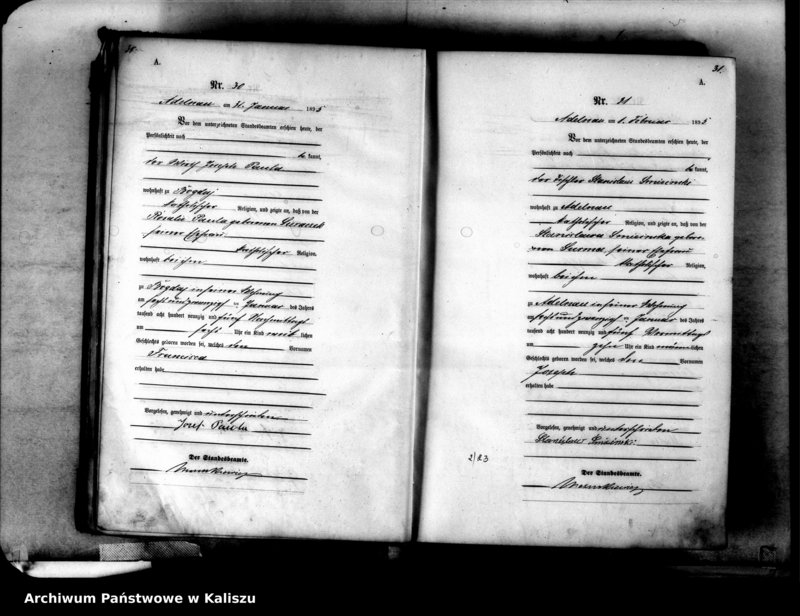 30.
A.
Nr. 30
Adelnau am 31. Januar 1895
Vor dem unterzeichneten Standesbeamten erschien heute, der
Persönlichkeit nach
be kannt,
der Wirth Joseph Pawla
wohnhaft zu Bogdaj
katholischer Religion, und zeigte an, daß von der
Rosalie Pawla geborenen
seiner Ehefrau
katholischer Religion,
wohnhaft bei ihm
zu Bogdaj in seiner Wohnung
am sechs und zwanzigsten Januar des Jahres
tausend acht hundert neunzig und fünf Nachmittags
um sechs Uhr ein Kind weib lichen
Geschlechts geboren worden sei, welches den Vornamen
Francisca
erhalten habe
Vorgelesen, genehmigt und unterschrieben
Jozef Pawla
Der Standesbeamte.
31.
A.
Nr. 31
Adelnau am 1. Februar 1895
Vor dem unterzeichneten Standesbeamten erschien heute, der
Persönlichkeit nach
be kannt,
der Tischler Stanislaus
wohnhaft zu Adelnau
katholischer Religion, und zeigte an, daß von der
Stanislawa gebore-
nen seiner Ehefrau
katholischer Religion,
wohnhaft bei ihm
zu Adelnau in seiner Wohnung
am sechs und zwanzigsten Januar des Jahres
tausend acht hundert neunzig und fünf Vormittags
um zehn Uhr ein Kind männ lichen
Geschlechts geboren worden sei, welches den Vornamen
Joseph
erhalten habe
Vorgelesen, genehmigt und unterschrieben
Stanislaus
2/83
Der Standesbeamte.
Archiwum Państwowe w Kaliszu